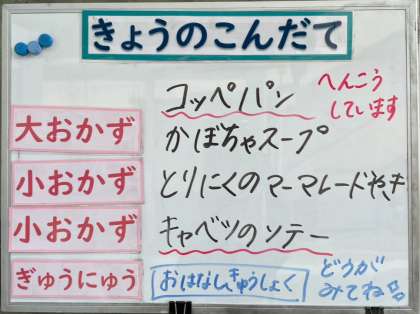 きょうのこんだて
コッペパン
へんこう
しています
大おかず かぼちゃスープ
小おかず とりにくのマーマレードやき
小おかず キャベツのソテー
ぎゅうにゅう おはなしきゅうしょく
どうが
みてね